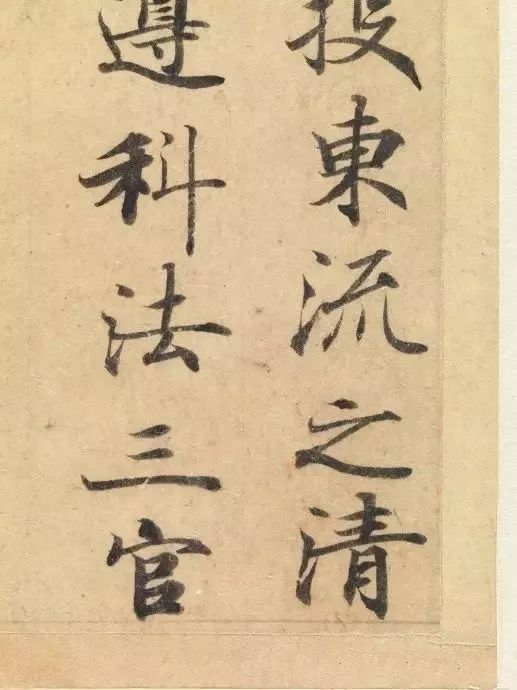 投東流之清
遵科法三官